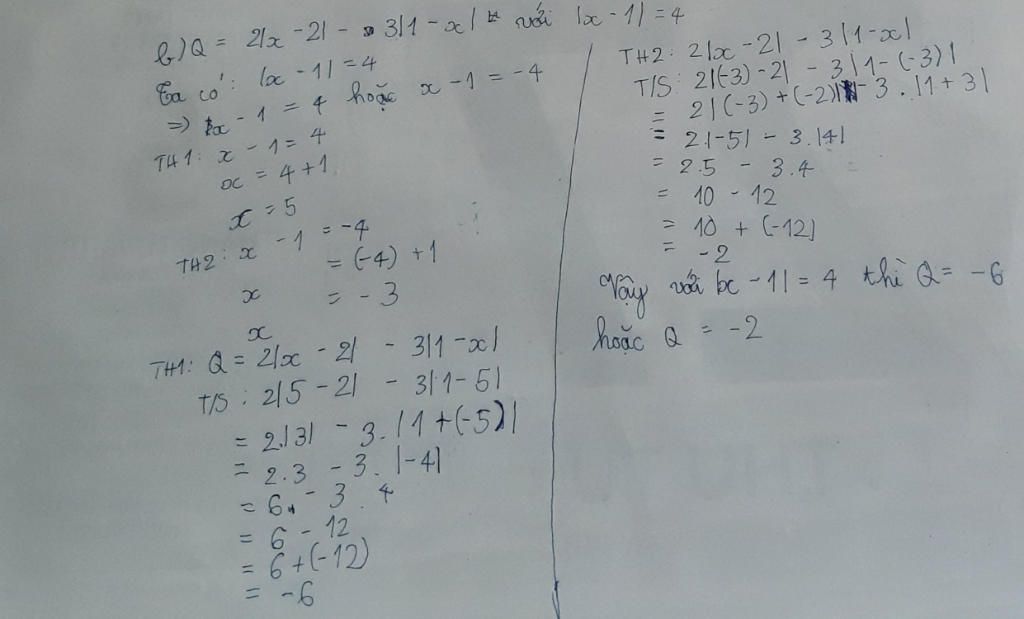 b) Q = 2|x - 2| - 3|1 - x| với |x - 1| = 4
Ta có: |x - 1| = 4
=> x - 1 = 4 hoặc x - 1 = -4
TH1: x - 1 = 4
x = 4 + 1
x = 5
TH2: x - 1 = -4
x = (-4) + 1
x = -3
TH1: Q = 2|x - 2| - 3|1 - x|
T/S: 2|5 - 2| - 3|1 - 5|
= 2.|3| - 3.|1 + (-5)|
= 2.3 - 3.|-4|
= 6 - 3.4
= 6 - 12
= 6 + (-12)
= -6
TH2: 2|x - 2| - 3|1 - x|
T/S: 2|(-3) - 2| - 3|1 - (-3)|
= 2|(-3) + (-2)| - 3.|1 + 3|
= 2.|-5| - 3.|4|
= 2.5 - 3.4
= 10 - 12
= 10 + (-12)
= -2
Vậy với |x - 1| = 4 thì Q = -6
hoặc Q = -2